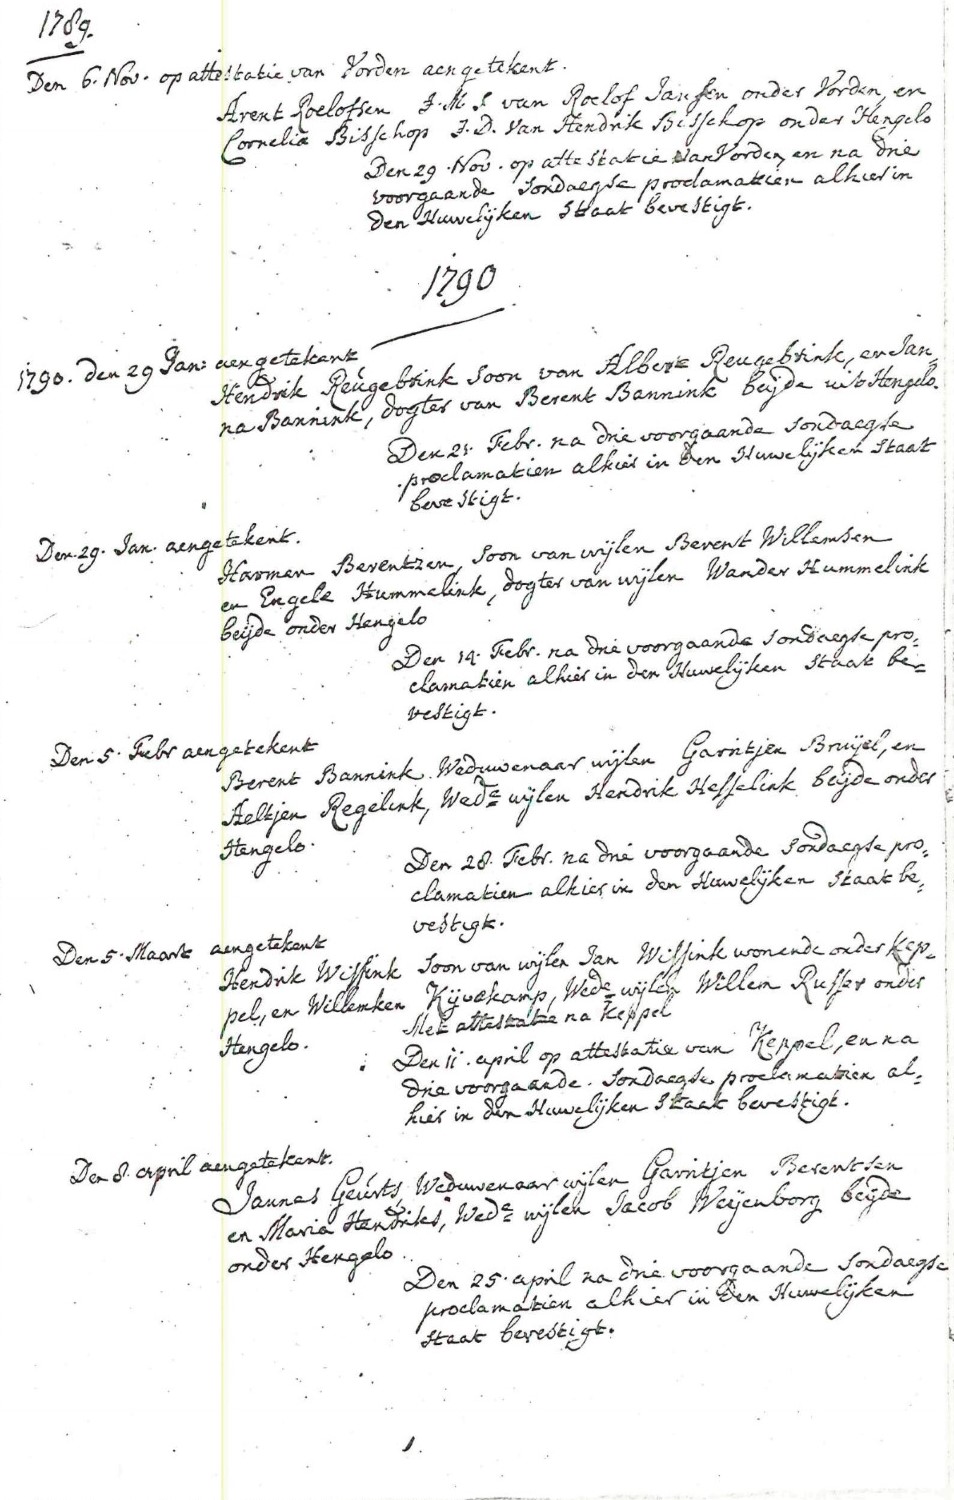 1789.
Den 6. Nov. op attestatie van Vorden aengetekent.
Arent Roelofsen J.M. S. van Roelof Janssen onder Vorden, en
Cornelia Bisschop J.D. van Hendrik Bisschop onder Hengelo
Den 29. Nov. op attestatie van Vorden, en na drie
voorgaande Sondaegse proclamatien alhier in
den Huwelijken Staat bevestigt.
1790
1790. den 29 Jan: aengetekent
Hendrik Reugebrink Soon van Albert Reugebrink, en Jan,
na Bannink, dogter van Berent Bannink beijde uit Hengelo.
Den 21. Febr. na drie voorgaande Sondaegse
proclamatien alhier in den Huwelijken Staat
bevestigt.
Den 29. Jan. aengetekent.
Harmen Berentzen, Soon van wijlen Berent Willemsen
en Engele Hummelink, dogter van wijlen Wander Hummelink
beijde onder Hengelo
Den 14. Febr. na drie voorgaande Sondaegse pro,
clamatien alhier in den Huwelijken Staat be=
vestigt.
Den 5. Febr aengetekent
Berent Bannink Weduwenaar wijlen Garritjen Bruijel, en
Aeltjen Regelink, Wede wijlen Hendrik Hesselink beijde onder
Hengelo.
Den 28. Febr. na drie voorgaande Sondaegse pro,
clamatien alhier in den Huwelijken Staat be,
vestigt.
Den 5. Maart aengetekent
Hendrik Wissink Soon van wijlen Jan Wissink wonende onder Kep,
pel, en Willemken Kijvekamp, Wede wijlen Willem Russer onder
Hengelo.
Met attestatie na Keppel
Den 11. april op attestatie van Keppel, en na
drie voorgaande Sondaegse proclamatien al,
hier in den Huwelijken Staat bevestigt.
Den 8. april aengetekent.
Jannes Geurts, Weduwenaar wijlen Garritjen Berentsen
en Maria Hendriks, Wede wijlen Jacob Weijenborg beijde
onder Hengelo
Den 25. april na drie voorgaande Sondaegse
proclamatien alhier in den Huwelijken
Staat bevestigt.